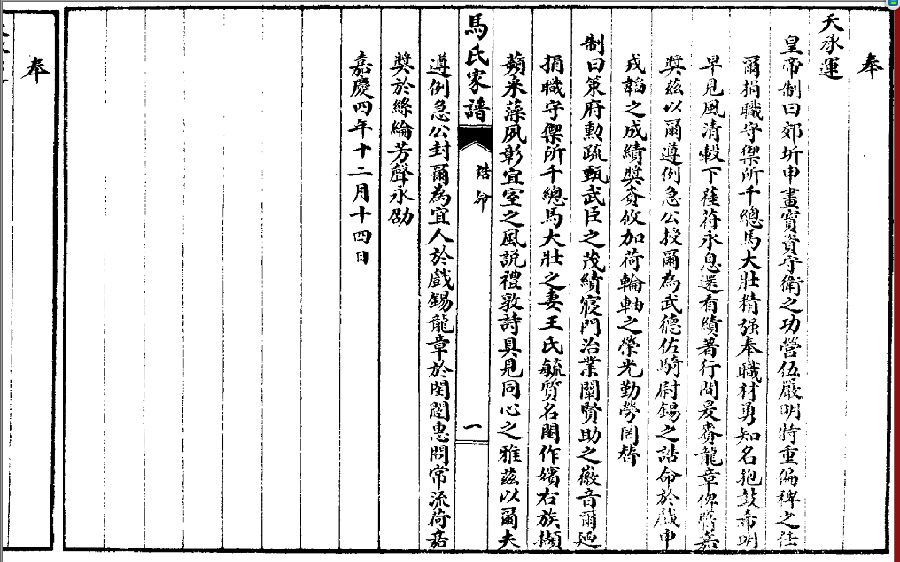 奉
天承運
皇帝制曰郊圻申畫實資守衛之功營伍嚴明特重偏裨之任
爾捐職守禦所千總馬大壯精强奉職材勇知名枹鼓希明
早見風清轂下萑苻永息還有績著行間爰賚龍章
獎茲以爾遵例急公授爾為武德佐騎尉錫之誥命於戲申
戎韜之成績獎賚攸加荷輪軸之榮光勤勞罔替
制曰策府勳疏甄武臣之茂績寢門治業闡賢助之徽音爾
捐職守禦所千總馬大壯之妻王氏毓質名閨作嬪右族擷
蘋采藻夙彰宜室之風說禮敦詩具見同心之雅茲以爾夫
遵例急公封爾為宜人於戲錫龍章於閨閫惠問常流荷嘉
獎於絲綸芳聲永劭
嘉慶四年十二月十四日
馬氏家譜
誥命
一
奉